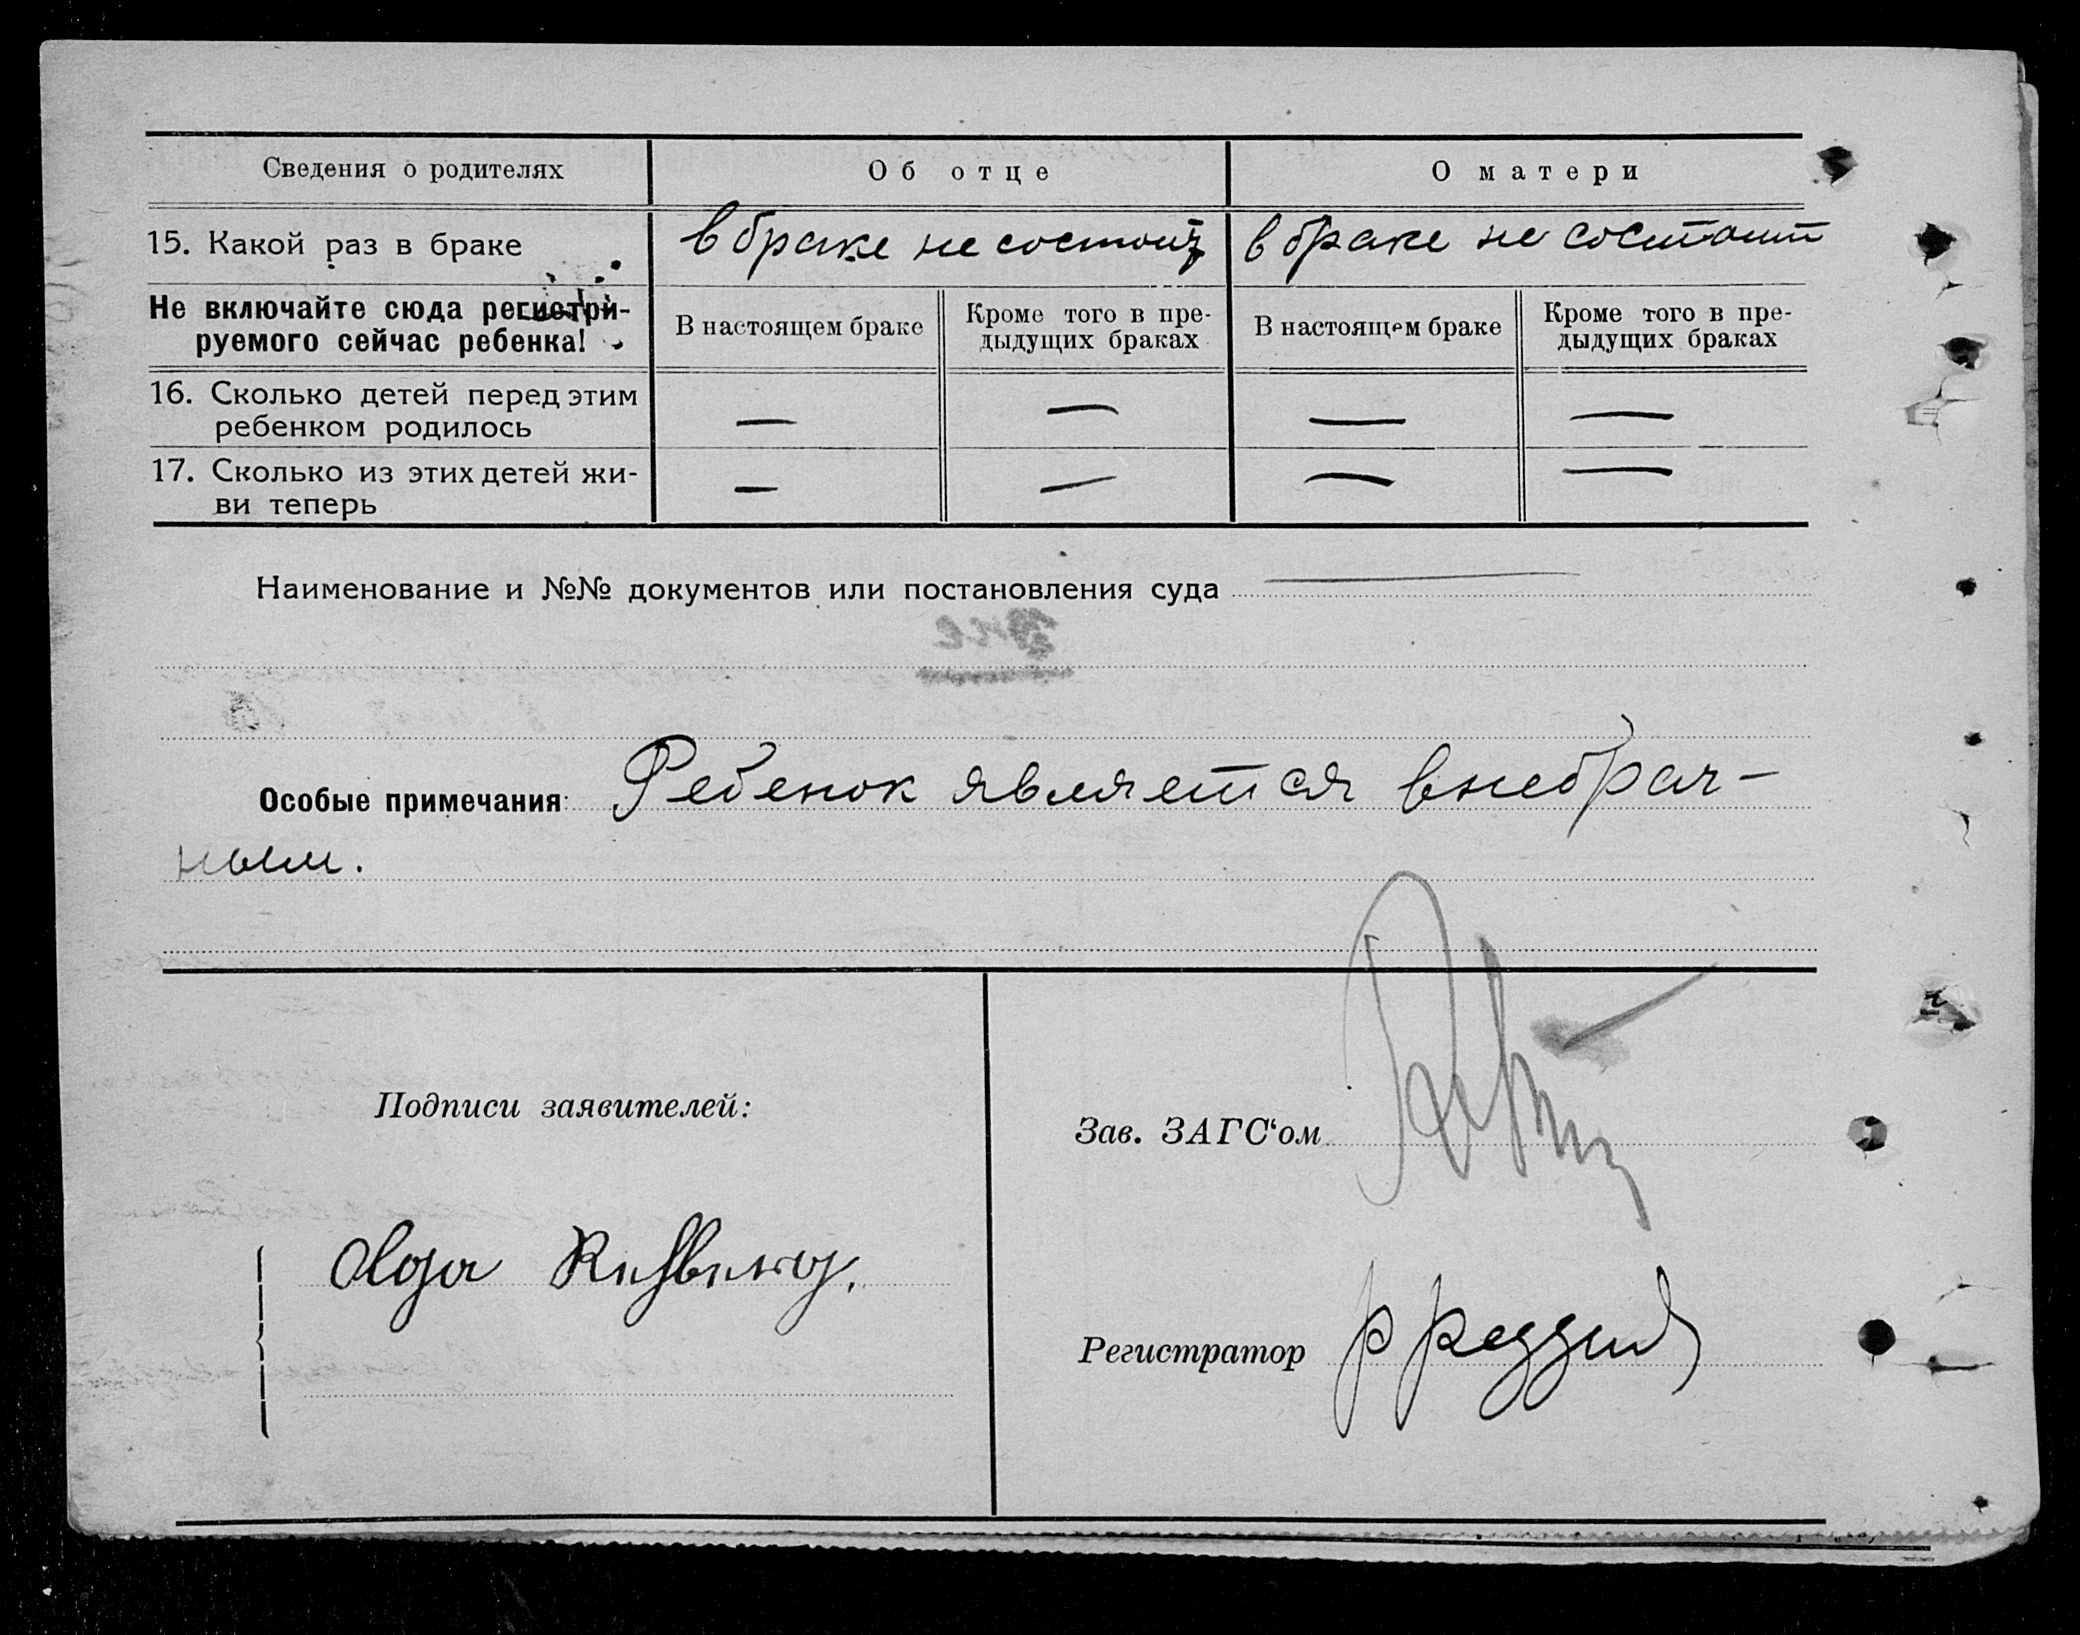 Сведения о родителях
Об отце
О матери
15. Какой раз в браке
в браке не состоит
в браке не состоит
Не включайте сюда регистри-
руемого сейчас ребенка!
В настоящем браке
Кроме того в пре-
дыдущих браках
В настоящем браке
Кроме того в пре-
дыдущих браках
16. Сколько детей перед этим
ребенком родилось
— — — —
17. Сколько из этих детей жи-
ви теперь
— — — —
Наименование и №№ документов или постановления суда —
Особые примечания: Ребенок является внебрач-
ным.
Подписи заявителей:
Olga
Зав. ЗАГС‘ом
Регистратор